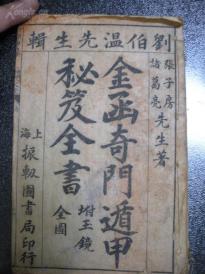 劉伯温先生輯
張子房
諸葛亮
先生著
金函奇門遁甲
秘笈全書
坿玉鏡
全圖
上海
振軔圖書局印行